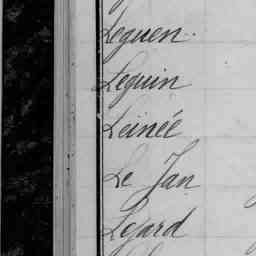 Leguen
Leguin
Leinée
Le Jan
Lejard